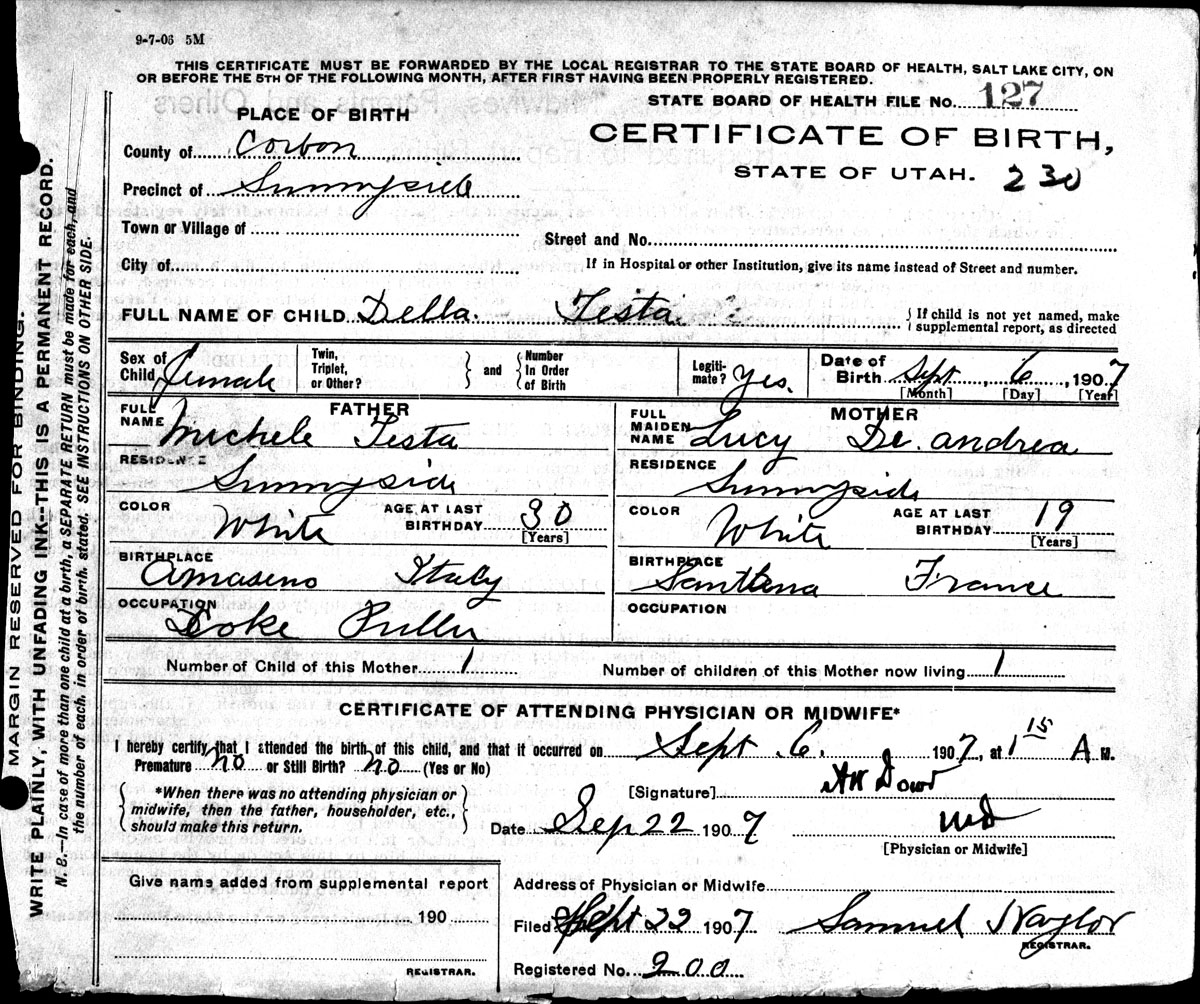 9-7-06 5M
THIS CERTIFICATE MUST BE FORWARDED BY THE LOCAL REGISTRAR TO THE STATE BOARD OF HEALTH, SALT LAKE CITY, ON
OR BEFORE THE 5TH OF THE FOLLOWING MONTH, AFTER FIRST HAVING BEEN PROPERLY REGISTERED.
STATE BOARD OF HEALTH FILE No. 127
PLACE OF BIRTH
CERTIFICATE OF BIRTH,
County of Corbon
STATE OF UTAH. 230
Precinct of Sunnyside
Town or Village of
Street and No.
City of
If in Hospital or other Institution, give its name instead of Street and number.
FULL NAME OF CHILD Della Testa { If child is not yet named, make
supplemental report, as directed
Sex of Child Female Twin, Triplet, or Other? } and { Number In Order of Birth Legiti-mate? yes. Date of Birth Sept, 6, 1907
[Month] [Day] [Year]
FATHER MOTHER
FULL NAME Michele Testa FULL MAIDEN NAME Lucy De. andrea
RESIDENCE Sunnyside RESIDENCE Sunnyside
COLOR White AGE AT LAST BIRTHDAY 30 [Years] COLOR White AGE AT LAST BIRTHDAY 19 [Years]
BIRTHPLACE Amaseno Italy BIRTHPLACE France
OCCUPATION Coke Puller OCCUPATION
Number of Child of this Mother 1 Number of children of this Mother now living 1
CERTIFICATE OF ATTENDING PHYSICIAN OR MIDWIFE*
I hereby certify that I attended the birth of this child, and that it occurred on Sept. 6. 1907, at 1 15 A M.
Premature no or Still Birth? no (Yes or No)
{ *When there was no attending physician or
midwife, then the father, householder, etc.,
should make this return. }
[Signature] Dowd
Date Sep 22 1907 MD
[Physician or Midwife]
Give name added from supplemental report
190
REGISTRAR.
Address of Physician or Midwife
Filed Sept 22 1907 Samuel Naylor
REGISTRAR.
Registered No. 200
MARGIN RESERVED FOR BINDING.
WRITE PLAINLY, WITH UNFADING INK--THIS IS A PERMANENT RECORD.
N. B.—In case of more than one child at a birth, a SEPARATE RETURN must be made for each, and
the number of each, in order of birth, stated. SEE INSTRUCTIONS ON OTHER SIDE.